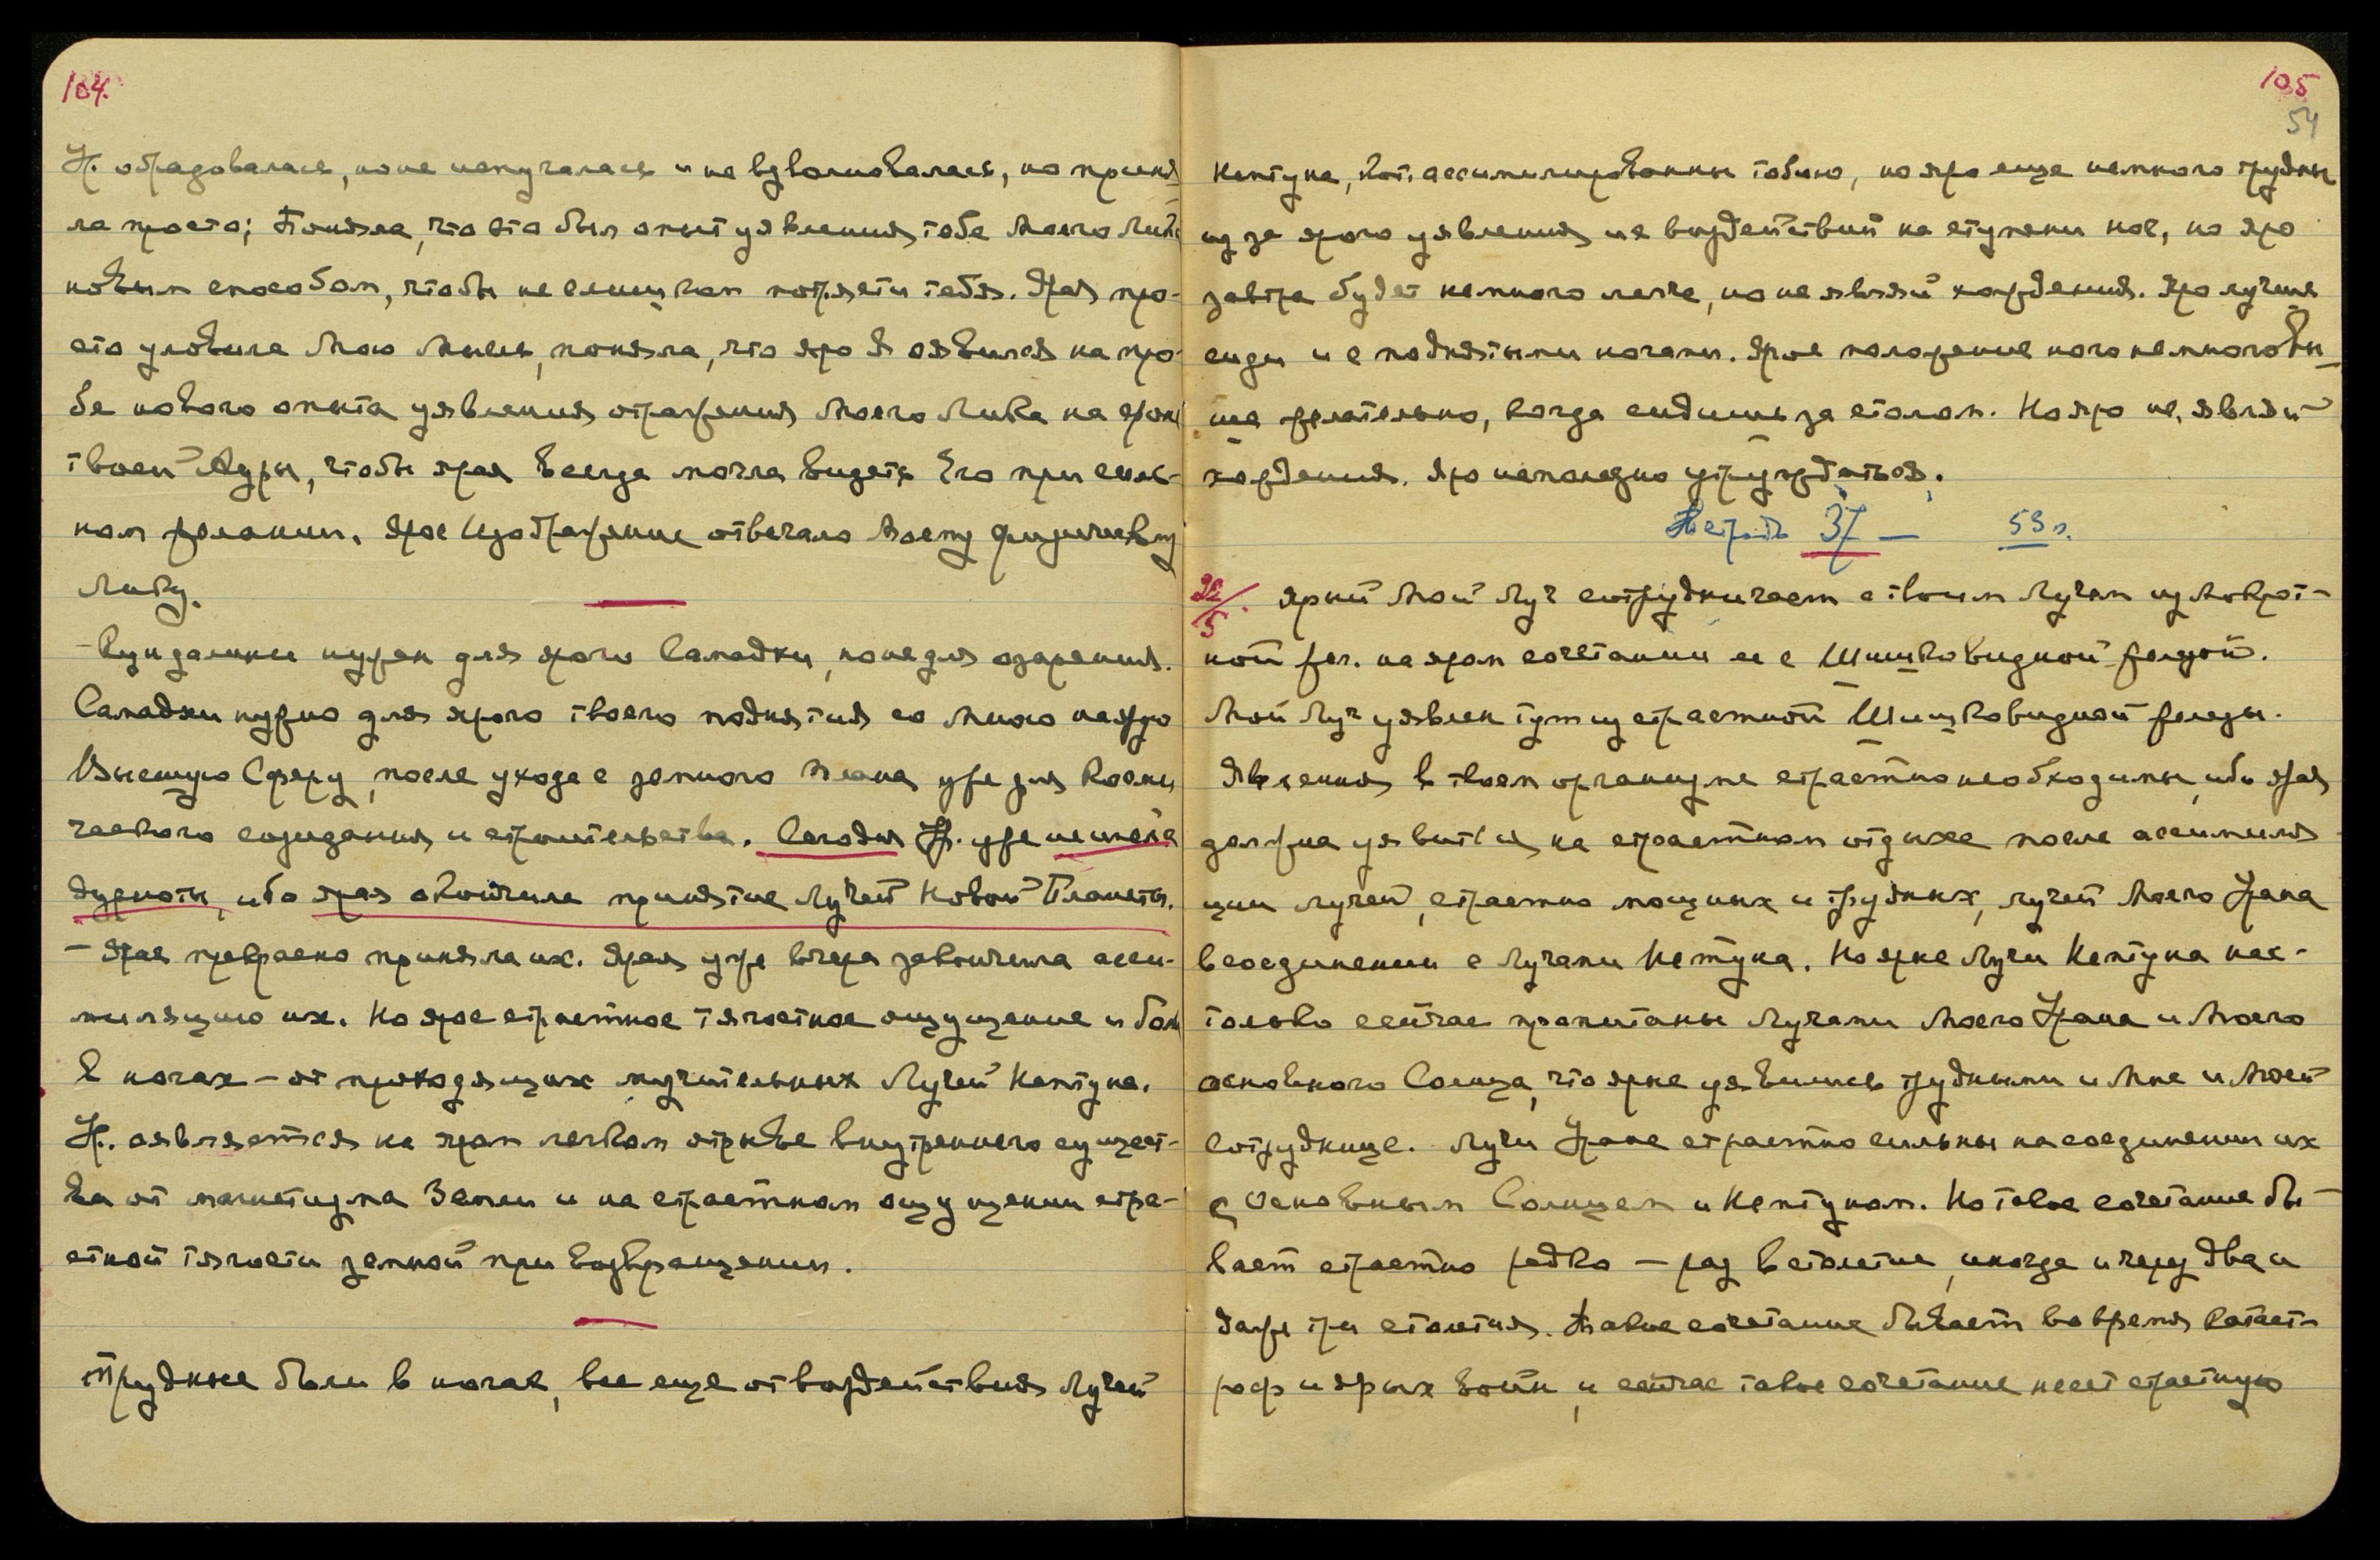 104.
У. обрадовалась, но не испугалась и не взволновалась, но приня-
ла просто; Поняла, что это был опыт уявления тебе Моего Лика
новым способом, чтобы не слишком потрясти тебя. Ярая про-
сто уловила Мою Мысль, поняла, что яро Я оявился на про-
бе нового опыта уявления отражения Моего Лика на фоне
твоей Ауры, чтобы ярая всегда могла видеть Его при силь-
ном желании. Ярое Изображение отвечало Моему физическому
Лику.
Кундалини нужен для ярого Самадхи, но не для озарения.
Самадхи нужно для ярого твоего поднятия со Мною на яро
Высшую Сферу, после ухода с земного плана уже для косми
ческого созидания и строительства. Сегодня У. уже не имела
дурноты, ибо ярая окончила принятие Лучей Новой Планеты.
– Ярая прекрасно приняла их. Ярая уже вчера закончила асси-
миляцию их. Но ярое страстное тягостное ощущение и боли
в ногах – от приходящих мучительных Лучей Нептуна.
У. оявляется на яром легком отрыве внутреннего сущест-
ва от магнетизма Земли и на страстном ощущении стра-
стной тягости земной при возвращении.
Трудные боли в ногах, все еще от воздействия Лучей
105
54
Нептуна, кот. ассимилированы тобою, но яро еще немного трудны
из за ярого уявления их воздействий на ступени ног, но яро
завтра будет немного легче, но не являй хождения. Яро лучше
сиди и с поднятыми ногами. Ярое положение ног немного вы-
ше желательно, когда сидишь за столом. Но яро не являй
хождения. Яро неполезно утруждаться.
Тетрадь 37 – 53 л.
22/5. Яркий Мой Луч сотрудничает с твоим Лучом из Мокрот-
ной жел. на яром сочетании ее с Шишковидной железой.
Мой Луч уявлен тут из страстной Шишковидной железы.
Явления в твоем организме страстно необходимы, ибо ярая
должна уявиться на страстном отдыхе после ассимиля
ции лучей, страстно мощных и трудных, лучей Моего Урана
в соединении с Лучами Нептуна. Но ярые Лучи Нептуна нас-
только сейчас пропитаны Лучами Моего Урана и Моего
основного Солнца, что ярые уявились трудными и Мне и Моей
сотруднице. Лучи Урана страстно сильны на соединении их
с Основным Солнцем и Нептуном. Но такое сочетание бы-
вает страстно редко – раз в столетие, иногда и через два и
даже три столетия. Такое сочетание бывает во время катаст-
роф и ярых войн, и сейчас такое сочетание несет страстную